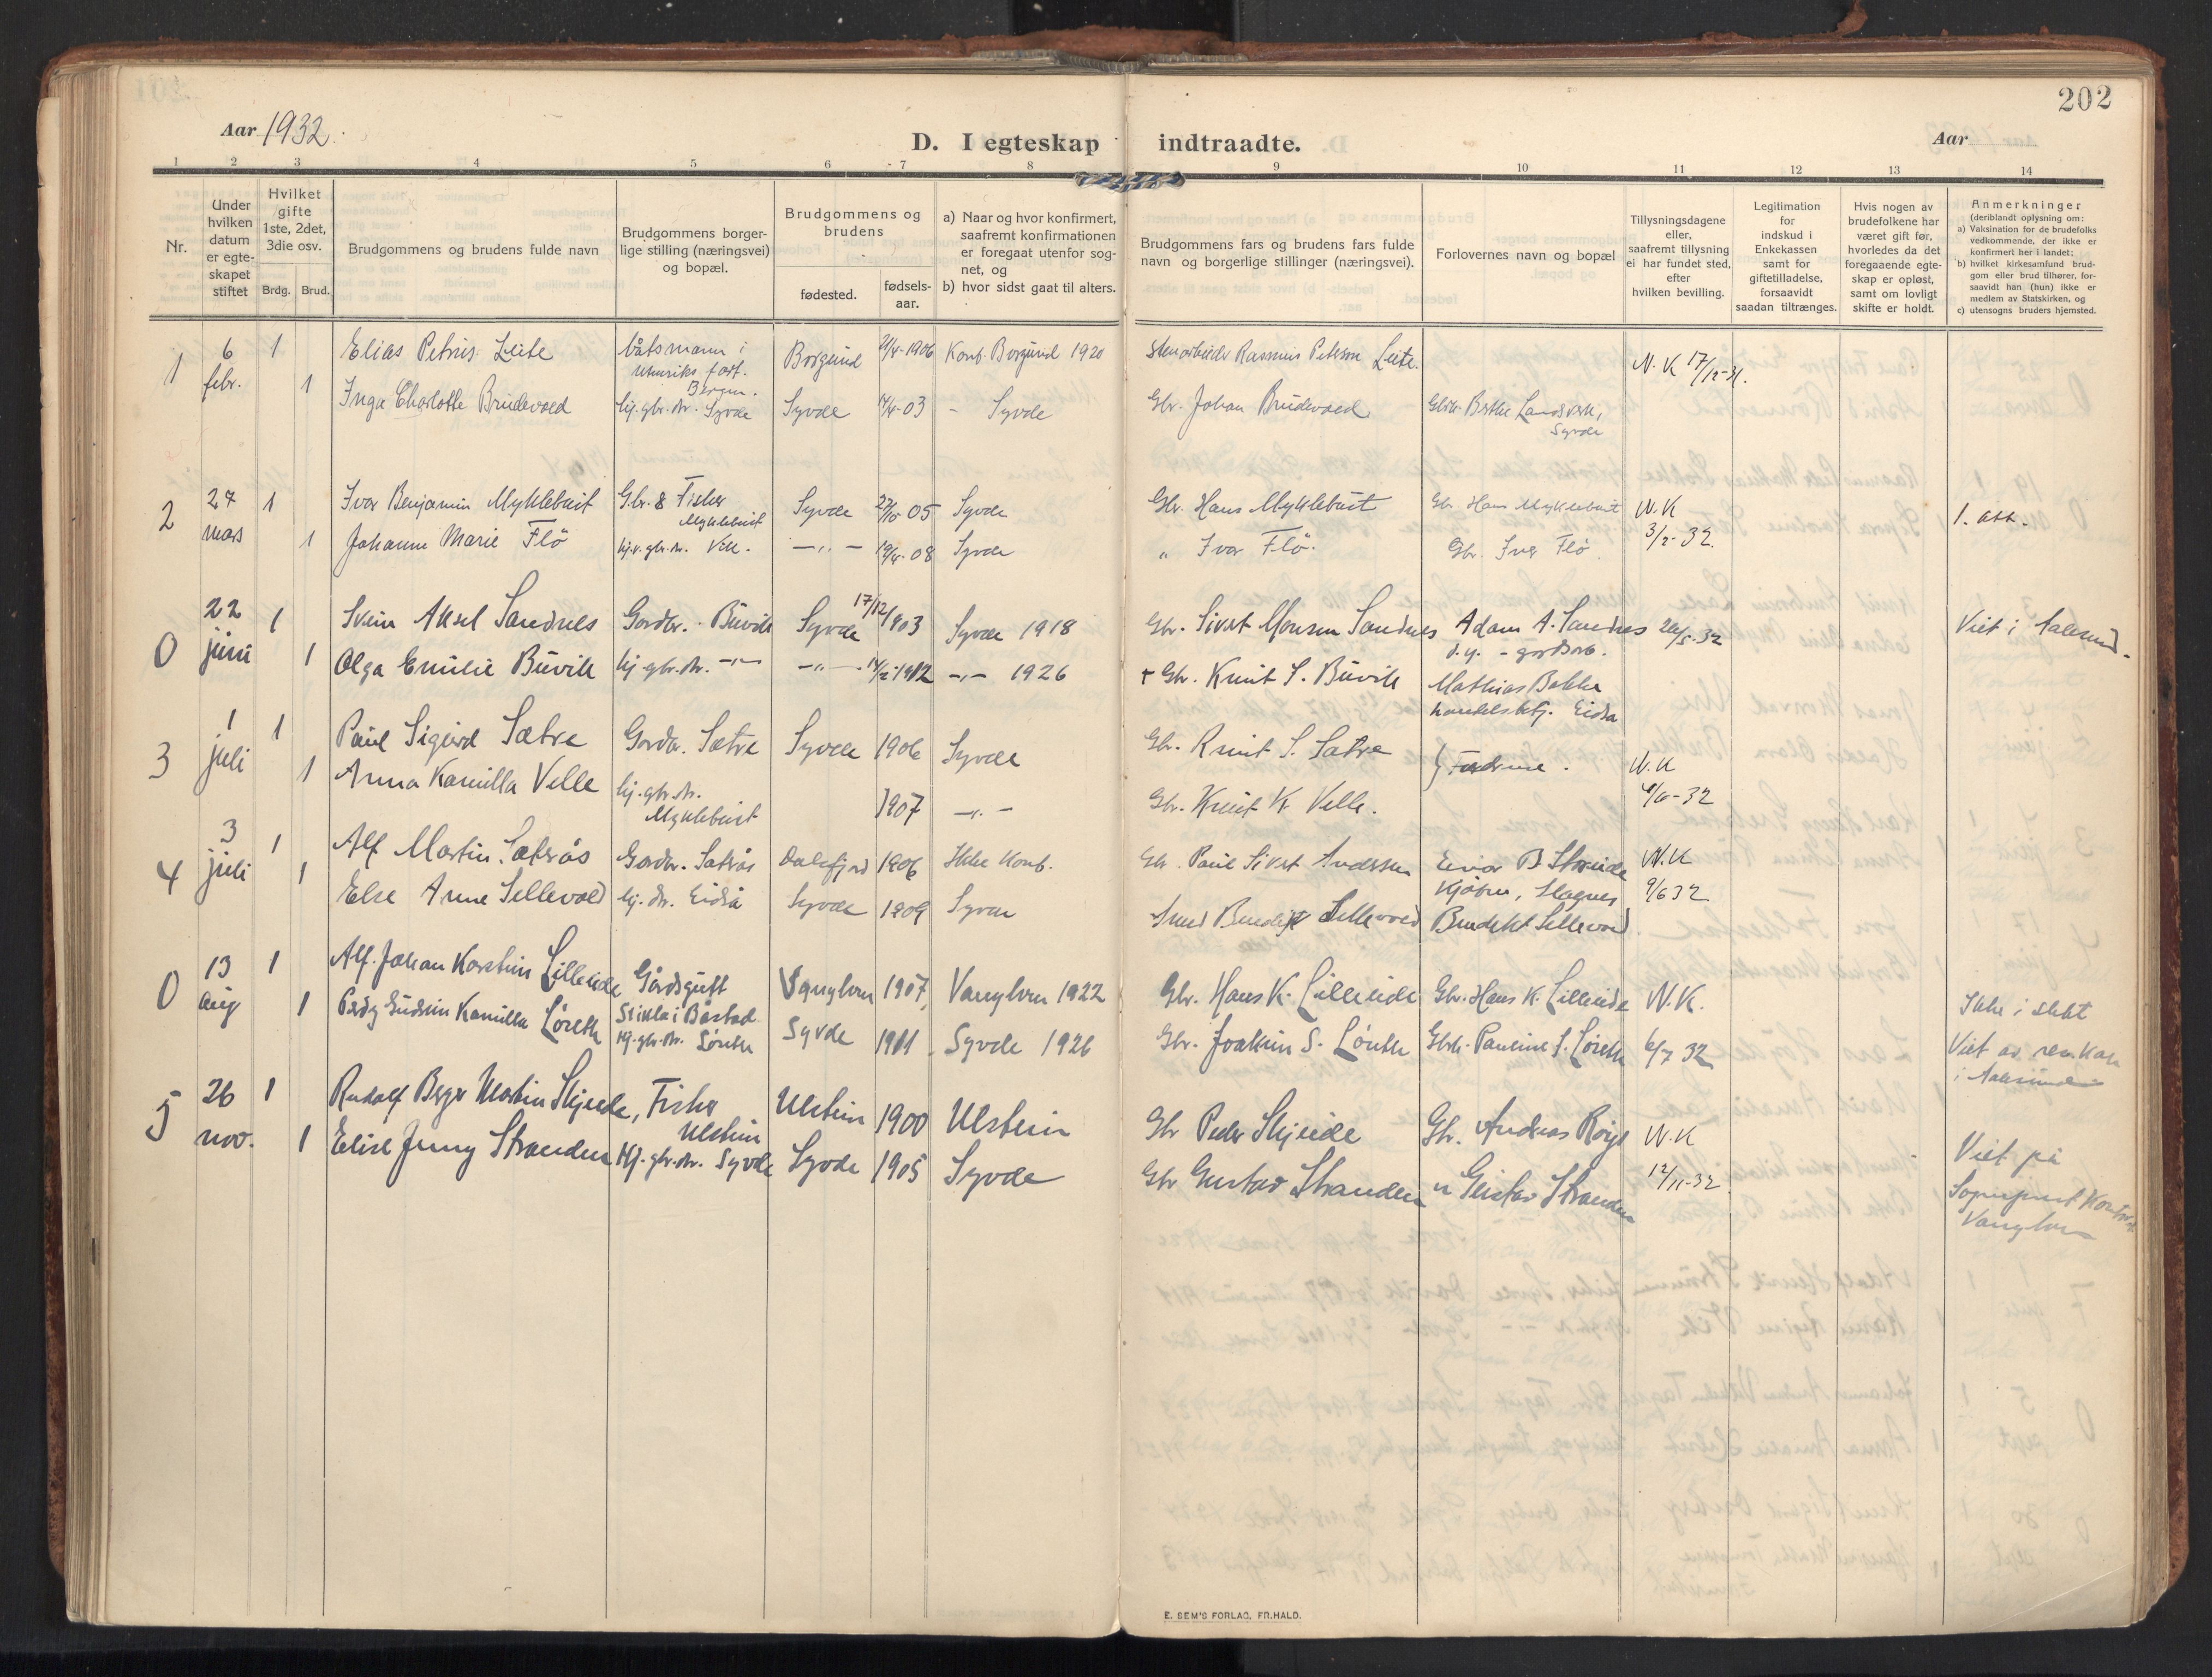 202
Aar 1932.
D. I egteskap indtraadte.
Aar
1 2 3 4 5 6 7 8 9 10 11 12 13 14
Nr.
Under hvilken datum er egteskapet stiftet
Hvilket gifte 1ste, 2det, 3die osv.
Brdg. Brud.
Brudgommens og brudens fulde navn
Brudgommens borgerlige stilling (næringsvei) og bopæl.
Brudgommens og brudens
fødested. fødselsaar.
a) Naar og hvor konfirmert, saafremt konfirmationen er foregaat utenfor sognet, og
b) hvor sidst gaat til alters.
Brudgommens fars og brudens fars fulde navn og borgerlige stillinger (næringsvei).
Forlovernes navn og bopæl
Tillysningsdagene eller, saafremt tillysning ei har fundet sted, efter hvilken bevilling.
Legitimation for indskud i Enkekassen samt for giftetilladelse, forsaavidt saadan tiltrænges.
Hvis nogen av brudefolkene har været gift før, hvorledes da det foregaaende egteskap er opløst, samt om lovligt skifte er holdt.
Anmerkninger
(deriblandt oplysning om:
a) Vaksination for de brudefolks vedkommende, der ikke er konfirmert her i landet;
b) hvilket kirkesamfund brudgom eller brud tilhører, forsaavidt han (hun) ikke er medlem av Statskirken, og
c) utensogns bruders hjemsted.
1 6 febr. 1 Elias Petrus Leite båtsmann i Bergen. Borgund 1906 Konf. Borgund 1920 Rasmus Leite. N.K 17/12-31.
1 Inga Charlotte Brudevoed hj. gbr. dr. Syvde Syvde 03 - Syvde Gbr. Johan Brudevoed Syvde
2 27 mars 1 Ivar Benjamin Myklebust Gbr. & Fisker Myklebust Syvde 05 Syvde Gbr. Hans Myklebust Gbr. Hans Myklebust N.K
1 Johanne Marie Flö -„- 08 Syvde „ Ivar Flö. Gbr. Ivar Flö. 3/2-32. 1. att.
0 22 juni 1 Svein Aksel Sandnes Gardbr. Buvik Syvde 17/12 1903 Syvde 1918 Gbr. Sivert Monsen Sandnes Adam A. Sandnes Viet i Aalesund.
1 Olga Emilie Buvik hj. gbr. dr. -„- -„- 1912 -„- 1926 + Gbr. Knut S. Buvik Mathias Bakke handelsbetj. Eidså
3 1 juli 1 Paul Sigurd Sætre Gardbr. Sætre Syvde 1906 Syvde Gbr. Knut S. Sætre } Fædrene. N.K
1 Anna Kamilla Velle hj. gbr. dr. Myklebust 1907 -„- Gbr. Knut K. Velle.
4 3 juli 1 Alf Martin Sæterås Gardbr. Sæterås Dalsfjord 1906 Ikke konf. Gbr. Paul Sivert Andersen N.K
1 Else Anne Sellevoed hj. dr. Eidså Syvde 1909 Syvde Sellevoed Sellevoed 9/6 32
0 13 aug 1 Alf. Johan Karstein Lilleeide Gårdsgutt Vanylven 1907 Vanylven 1922 Gbr. Hans K. Lilleeide Gbr. Hans K. Lilleeide N.K. Ikke i slekt
1 Gudrun Kamilla Löseth Hj. gbr. dr. Löseth Syvde 1911 Syvde 1926 Gbr. Joakim S. Löseth Pauline S. Löseth 6/7 32 Viet av i Aalesund
5 26 nov. 1 Rudolf Berger Martin Skjeide, Fisker Ulstein Ulstein 1900 Ulstein Gbr Peder Skjeide Gbr. Andreas N.K Viet på
1 Elise Jenny Stranden Hj. gbr. dr. Syvde Syvde 1905 Syvde Gbr Gustav Stranden „ Gustav Stranden 12/11-32. Vanylven
E. SEM'S FORLAG, FR.HALD.